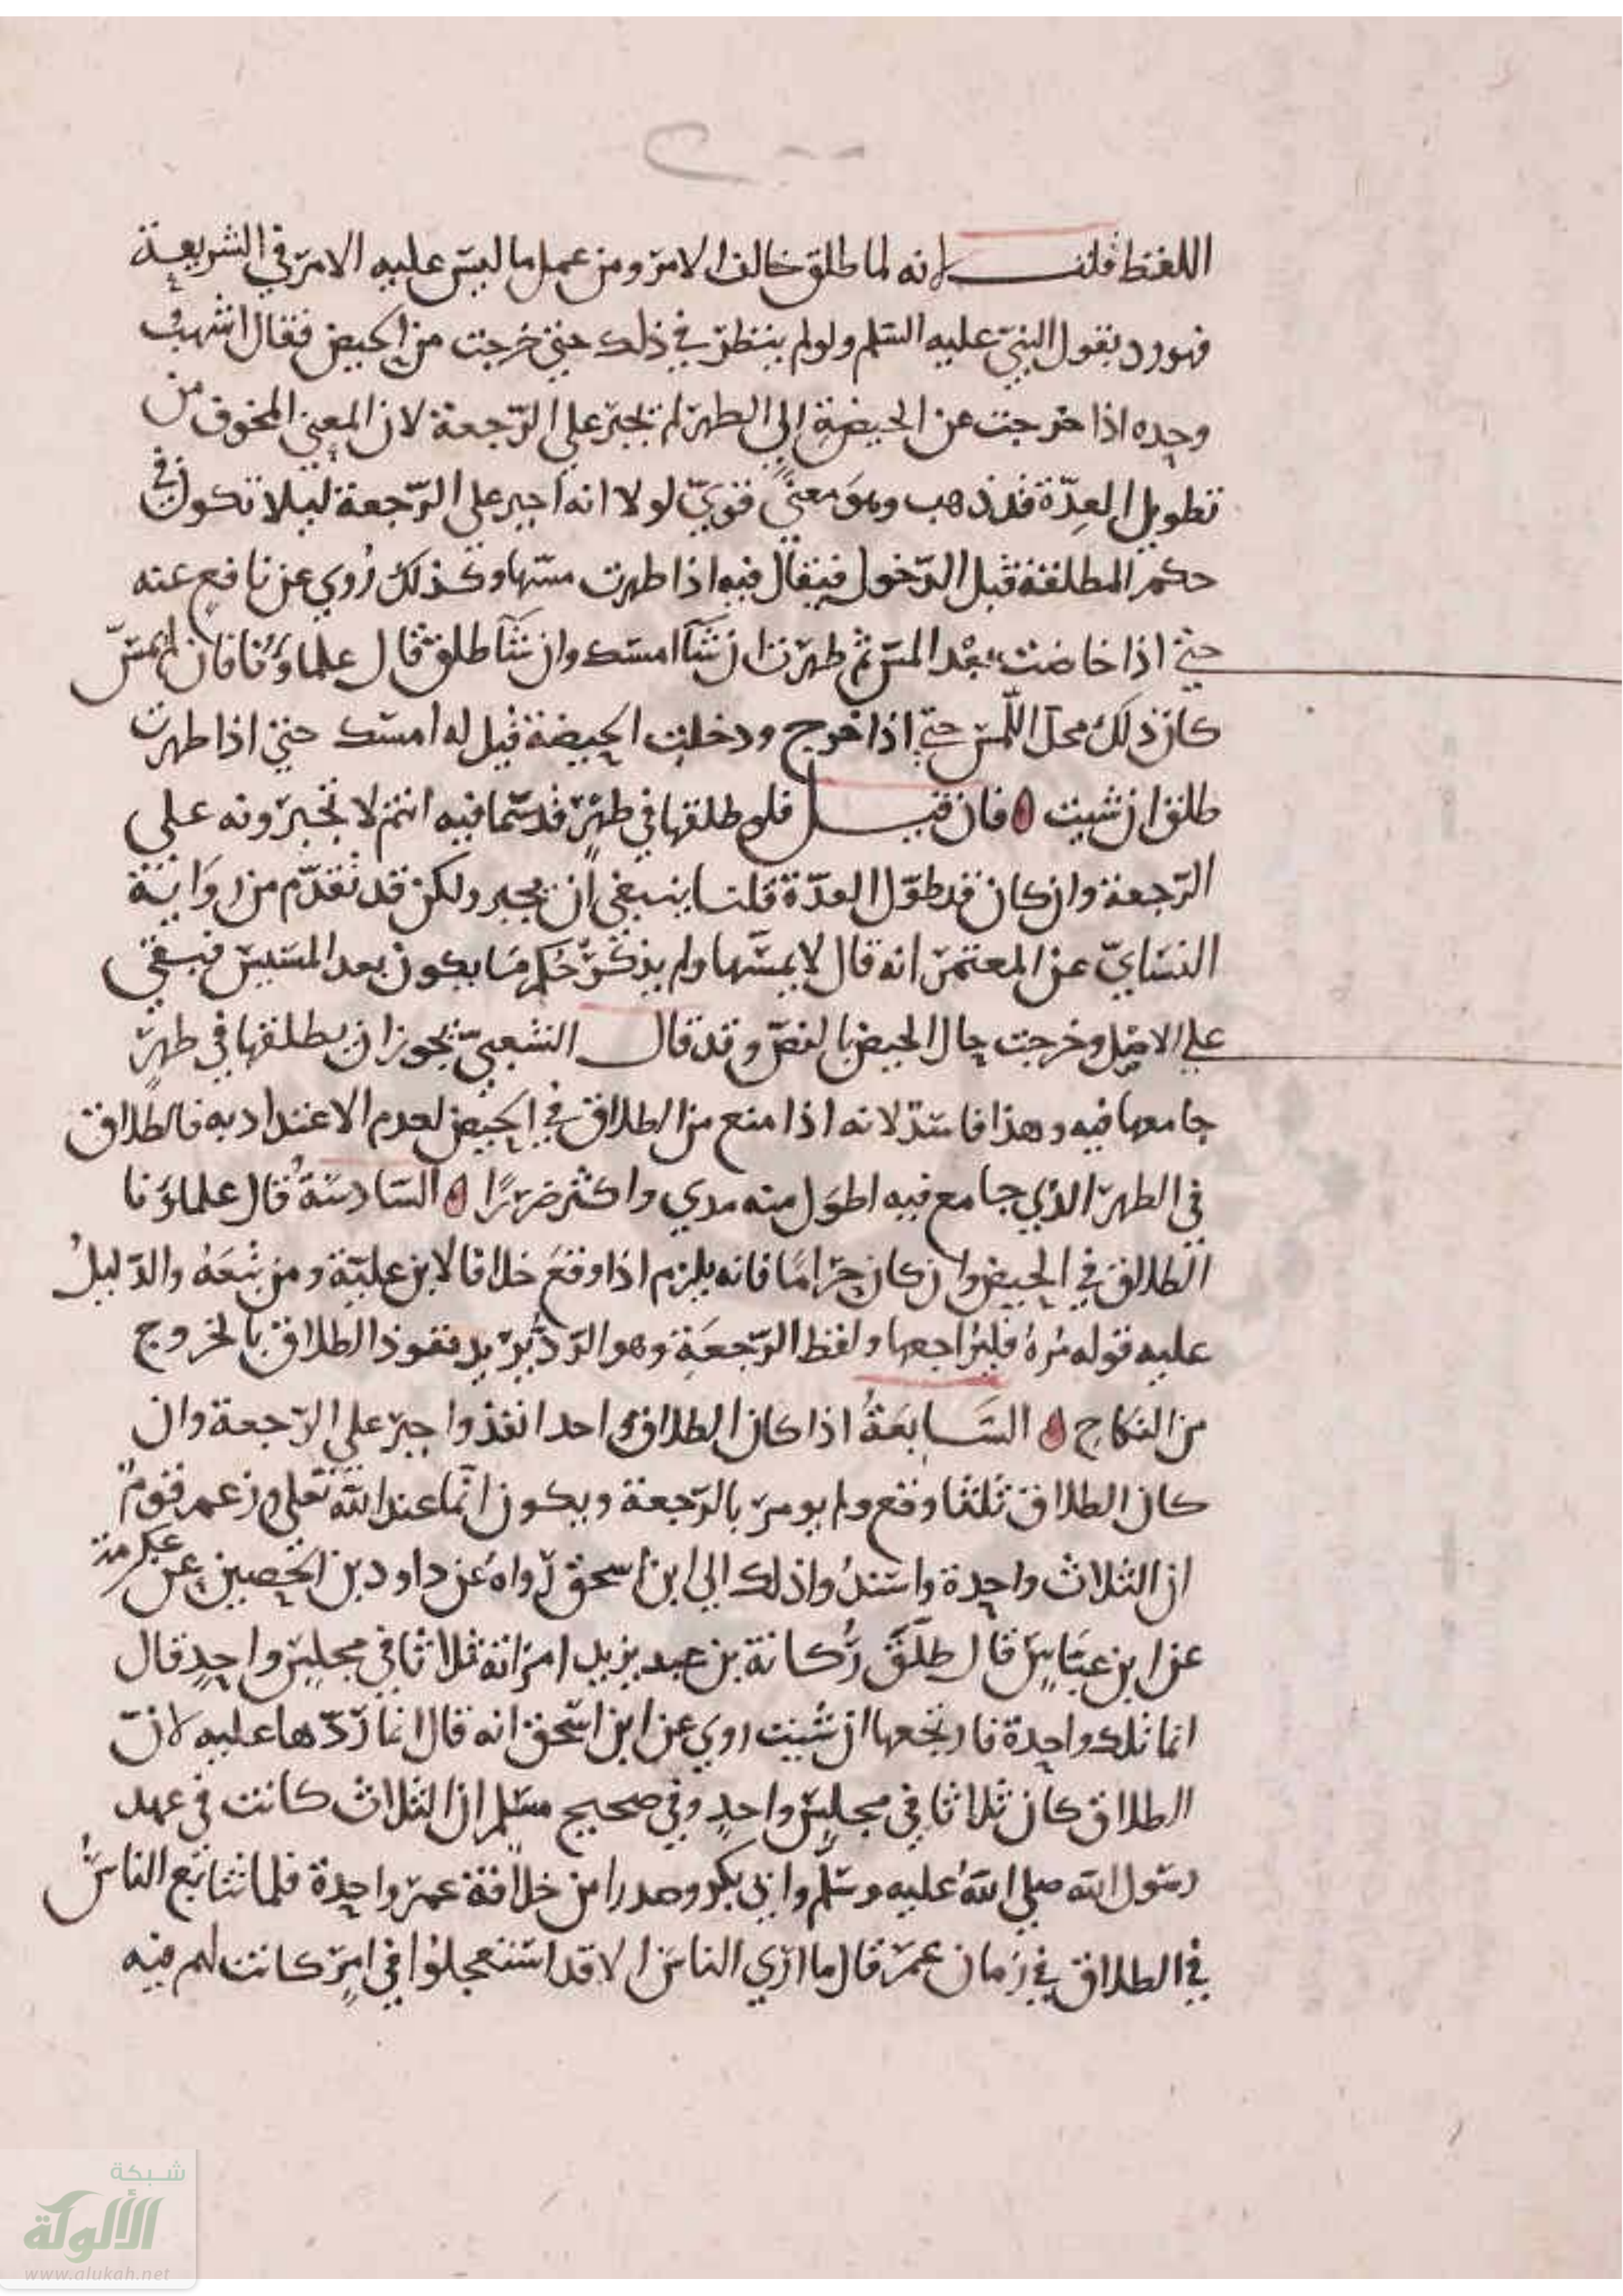 اللفظ قلت لانه لما طلق خالف الامر ومن عمل ما ليس عليه الامر في الشريعة
فهو رد بقول النبي عليه السلم ولو لم ينظر في ذلك حتى خرجت من الحيض فقال اشهب
وحده اذا خرجت عن الحيضة الى الطهر لم تجبر على الرجعة لان المعنى المخوف من
تطويل العدة قد ذهب وهو معنى قوي لولا انه اجبر على الرجعة ليلا تكون في
حكم المطلقة قبل الدخول فيقال فيه اذا طهرت مسها وكذلك روي عن نافع عنه
حتى اذا حاضت بعد المس ثم طهرت ان شا امسك وان شا طلق قال علماؤنا فان لم يمس
كان ذلك محل اللمس حتى اذا خرج ودخلت الحيضة قيل له امسك حتى اذا طهرت
طلق ان شيت فان قيل فلو طلقها في طهر قد مسها فيه انتم لا تجبرونه على
الرجعة وان كان قد طول العدة قلنا ينبغي ان يجبر ولكن قد تقدم من رواية
النساي عن المعتمر انه قال لا يمسها ولم يذكر حكم ما يكون بعد المسيس فبقي
على الاصل وخرجت حال الحيض بالنص وقد قال الشعبي يجوز ان يطلقها في طهر
جامعها فيه وهذا فاسد لانه اذا منع من الطلاق في الحيض لعدم الاعتداد به فالطلاق
في الطهر الذي جامع فيه اطول منه مدي واكثر ضررا السادسة قال علماؤنا
الطلاق في الحيض وان كان حراما فانه يلزم اذا وقع خلافا لابن علية ومن تبعه والدليل
عليه قوله مره فليراجعها ولفظ الرجعة وهو الرد يريد نفوذ الطلاق بالخروج
من النكاح السابعة اذا كان الطلاق واحدا نفذ واجبر على الرجعة وان
كان الطلاق ثلثا وقع ولم يومر بالرجعة ويكون اثما عند الله تعلى وزعم قوم
ان الثلاث واحدة واسندوا ذلك الى ابن اسحق رواه عن داود بن الحصين عن عكرمة
عن ابن عباس قال طلق ركانة بن عبد يزيد امراته ثلاثا في مجلس واحد قال
انما تلك واحدة فارتجعها ان شيت روي عن ابن اسحق انه قال انما ردها عليه لان
الطلاق كان ثلاثا في مجلس واحد وفي صحيح مسلم ان الثلاث كانت في عهد
رسول الله صلى الله عليه وسلم وابي بكر وصدرا من خلافة عمر واحدة فلما تتابع الناس
في الطلاق في زمان عمر قال ما ارى الناس الا قد استعجلوا في امر كانت لهم فيه
شبكة
الألوكة
www.alukah.net